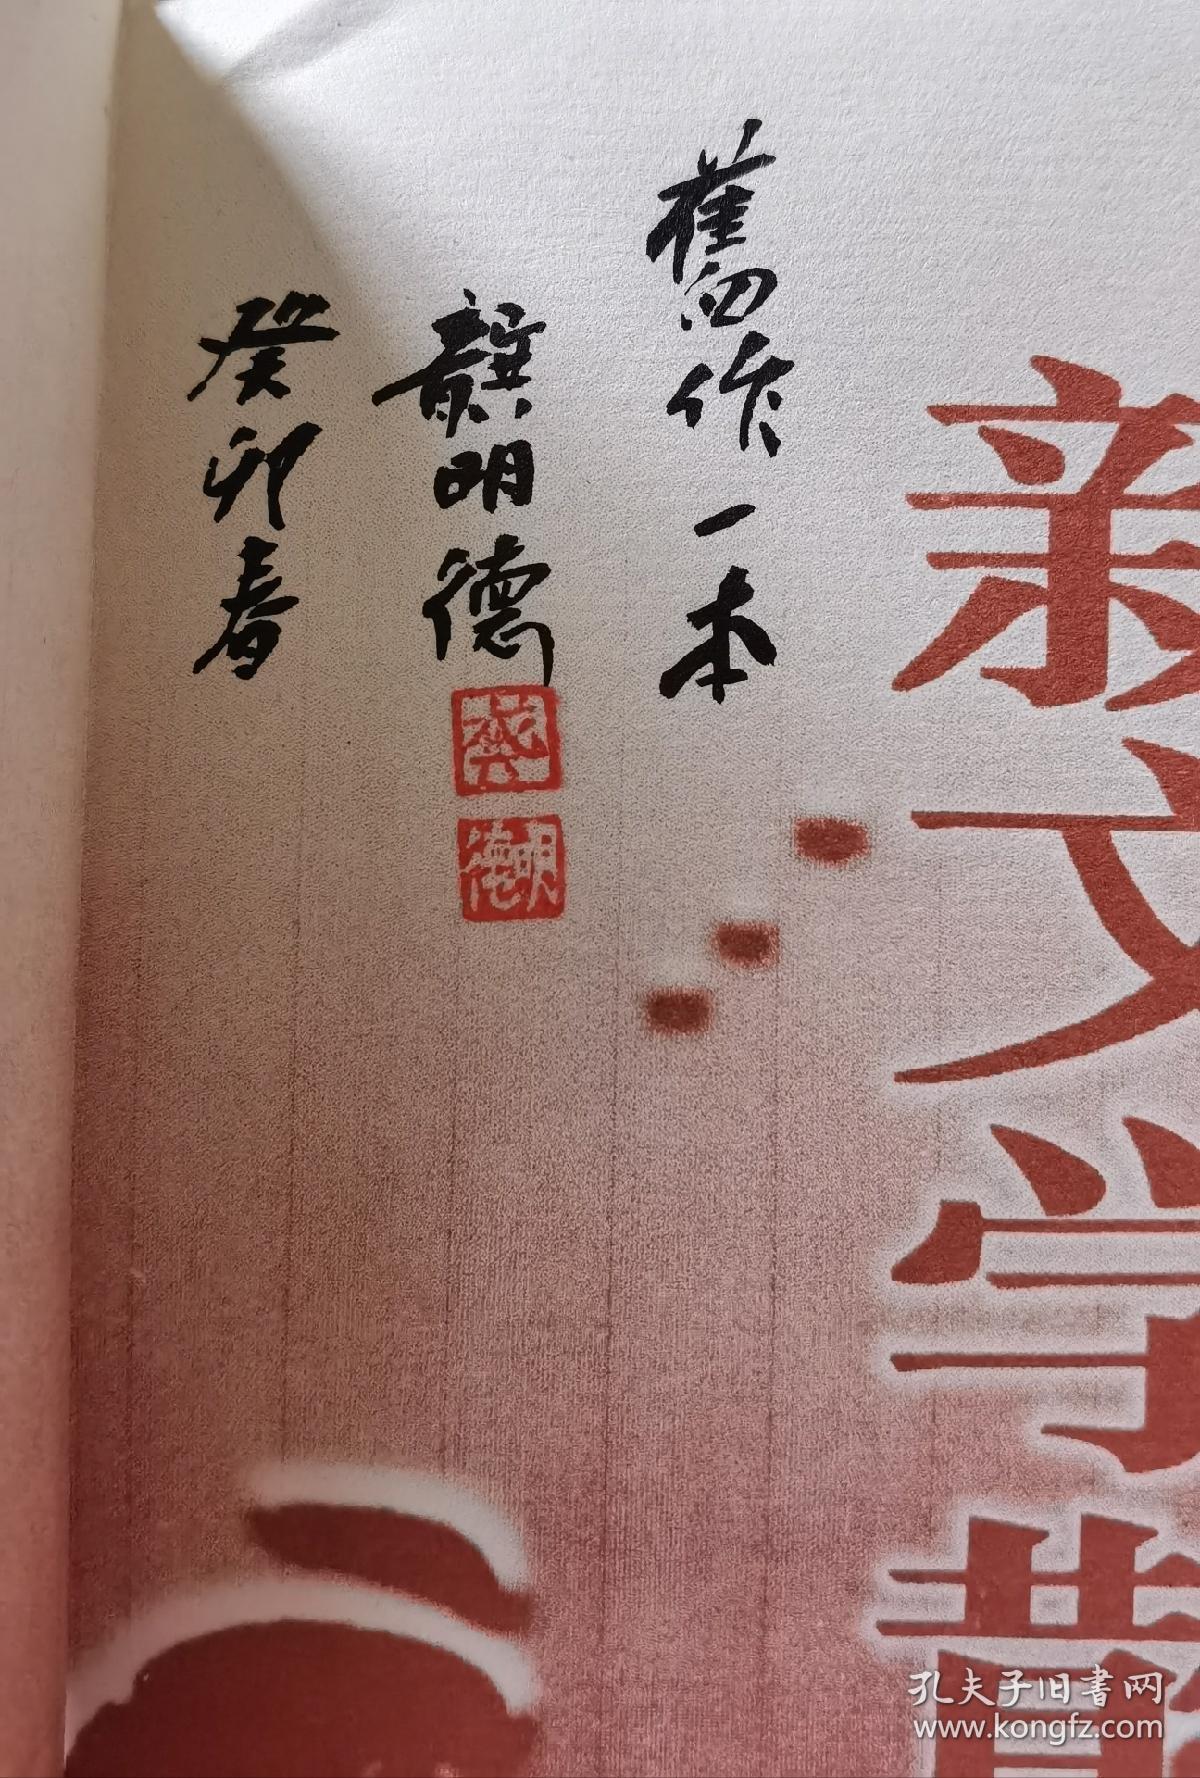 舊作一本
龔明德
癸卯春
龔
明德
新文学散
孔夫子旧书网
www.kongfz.com